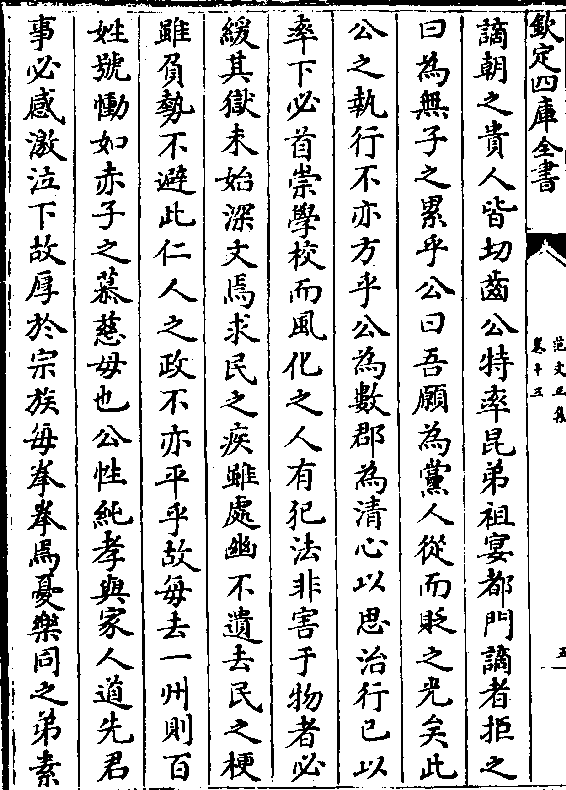 欽定四庫全書
范文正集
卷十三
五
謫朝之貴人皆切齒公特率昆弟祖宴都門謫者拒之
曰為無子之累乎公曰吾願為黨人從而貶之光矣此
公之執行不亦方乎公為數郡為清心以思治行已以
率下必首崇學校而風化之人有犯法非害于物者必
緩其獄未始深文焉求民之疾雖處幽不遺去民之梗
雖負勢不避此仁人之政不亦平乎故每去一州則百
姓號慟如赤子之慕慈母也公性純孝與家人道先君
事必感激泣下故厚於宗族每拳拳焉憂樂同之弟素